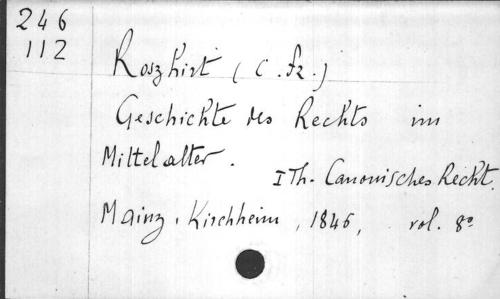 246
112
Roszhirt (C. Fr.)
Geschichte des Rechts im
Mittelalter.
I Th. Canonisches Recht.
Mainz, Kirchheim, 1846, vol. 8º